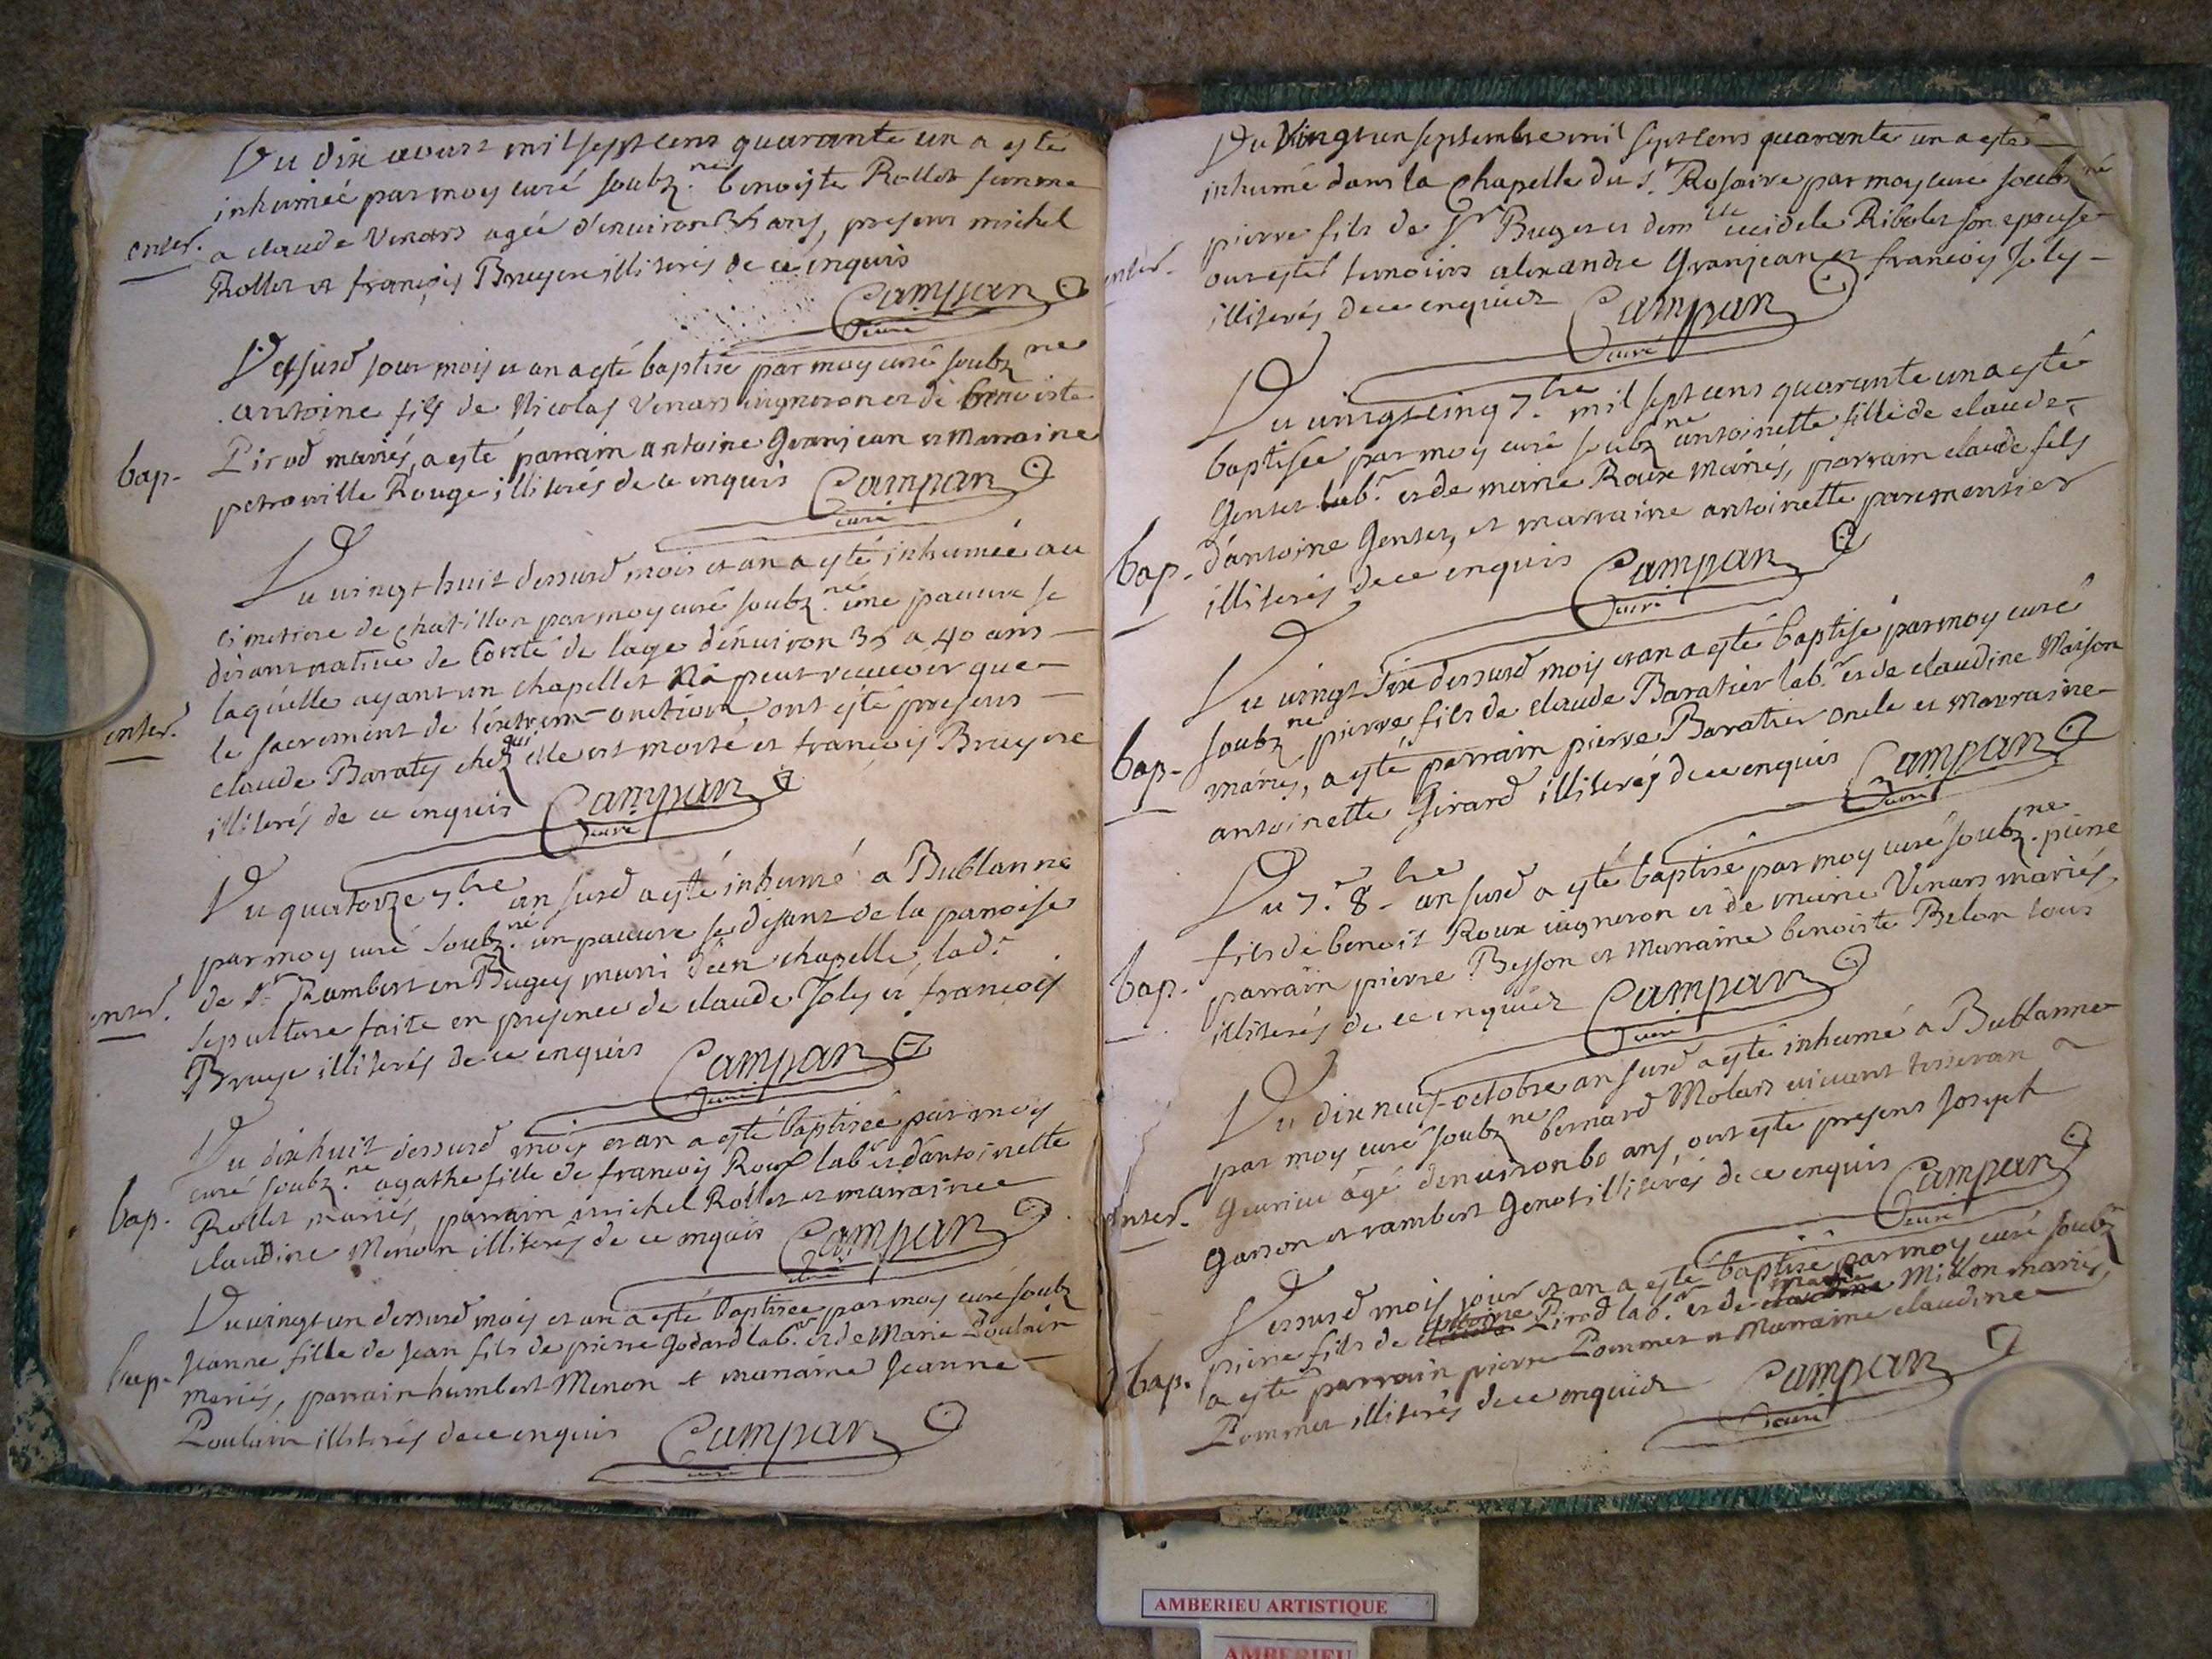 Du dix aoust mil sept cens quarante un a esté
inhumée par moy curé soubz.né benoiste Rollet femme
enter.
a claude Venars agée d'environ 35 ans, presens michel
Rollet et françois Bruyere illiterés de ce enquis
Campan
curé
Dessusd jour mois et an a esté baptisé par moy curé soubz ne
antoine fils de Nicolas Venars vigneron et de benoiste
bap.
Pirod mariés, a esté parrain antoine Granjean et Marraine
petronille Rouge illiterés de ce enquis
Campan
curé
Du vingt huit dessusd mois et an a esté inhumée au
cimetiere de chatillon par moy curé soubz.né une pauvre se
disant native de Comté de l'age d'environ 35 a 40 ans
laquelle ayant un chapellet n'a peut recevoir que
enter.
le sacrement de l'extrem-onction, ont esté presens
claude Baraty chez qui elle est morte et françois Bruyere
illiterés de ce enquis
Campan
curé
Du quatorze 7.bre an susd a esté inhumé a Bublanne
par moy curé soubz.né un pauvre se disant de la paroisse
enter.
de St Rambert en Bugey muni d'un chapelle, lad.
sepulture faite en presence de claude Joly et françois
Bruye illiterés de ce enquis
Campan
curé
Du dix huit dessusd mois et an a esté baptisée par moy
curé soubz.ne agathe fille de françois Roux lab.r et d'antoinette
bap.
Rollet mariés, parrain michel Rollet et marraine
claudine Menon illiterés de ce enquis
Campan
curé
Du vingt un dessusd mois et an a esté baptisee par moy curé soubz
bap.
Jeanne fille de Jean fils de pierre Godard lab.r et de Marie Poulain
mariés, parrain humbert Menon et marraine Jeanne
Poulain illiterés de ce enquis
Campan
curé
Du Vingt un septembre mil sept cens quarante un a esté
inhumé dans la chapelle du St. Rosaire par moy curé soubz né
pierre fils de Sr Buget et dem.lle Ribolet son epouse
enter.
ont esté temoins alexandre Granjean et françois Joly
illiterés de ce enquis
Campan
curé
Du vingt cinq 7.bre mil sept cens quarante un a esté
baptisée par moy curé soubz ne antoinette fille de claude
Genet lab.r et de marie Roux mariés, parrain claude fils
bap.
d'antoine Genet, et marraine antoinette parementier
illiterés de ce enquis
Campan
curé
Du vingt six dessusd mois et an a esté baptisé par moy curé
soubz ne pierre, fils de claude Baratier lab.r et de claudine Maison
bap.
mariés, a esté parrain pierre Baratier oncle et Marraine
antoinette Girard illiterés de ce enquis
Campan
curé
Du 7. 8.bre an susd a esté baptisé par moy curé soubz.ne pierre
fils de benoit Roux vigneron et de marie Venars mariés,
bap.
parrain pierre Besson et Marraine benoiste Belon tous
illiterés de ce enquis
Campan
curé
Du dix neuf octobre an susd a esté inhumé a Bublanne
par moy curé soubz ne bernard Molars vivant tisseran a
enter.
Gevrieu agé d'environ 60 ans, ont esté presens Joseph
Garson et rambert Genet illiterés de ce enquis
Campan
curé
Dessusd mois jour et an a esté baptisé par moy curé soubz
pierre fils de antoine Pirod lab.r et de marie Millon mariés,
bap.
a esté parrain pierre Pommet et Marraine claudine
Pommet illiterés de ce enquis
Campan
curé
AMBERIEU ARTISTIQUE
AMBERIEU